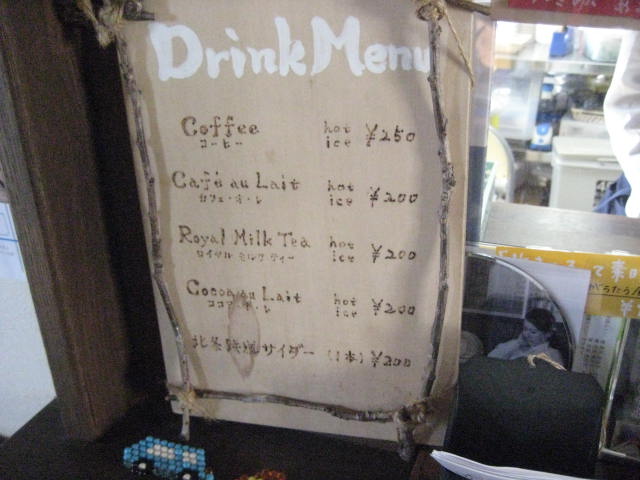 Drink Menu
Coffee hot ¥250
コーヒー ice
Café au Lait hot ¥200
カフェ・オ・レ ice
Royal Milk Tea hot ¥200
ロイヤル ミルク ティー ice
Cocoa au Lait hot ¥200
ココア・オ・レ ice
北条鉄道サイダー (1本) ¥200